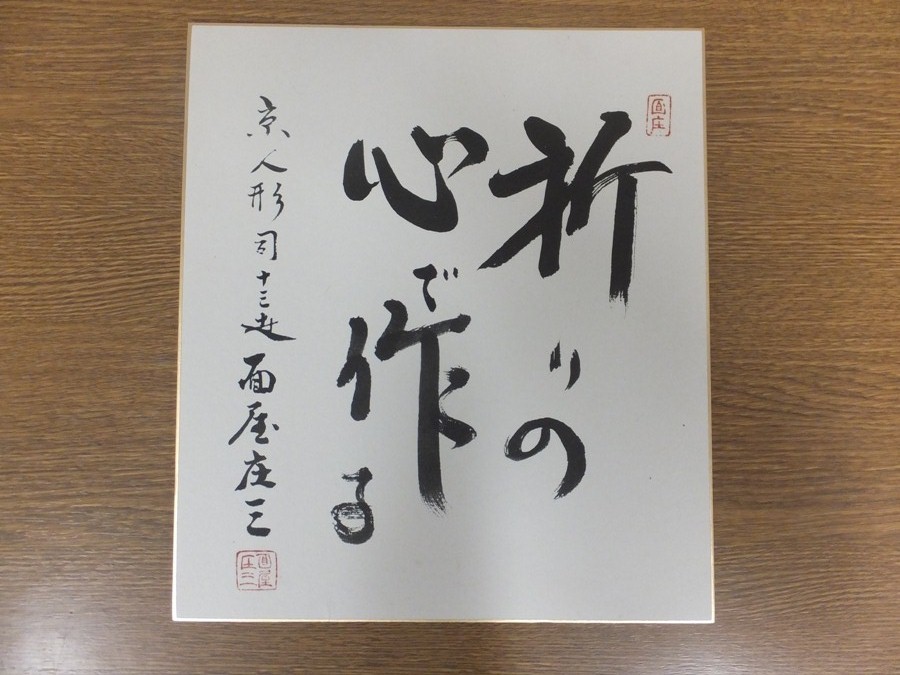 面庄
祈りの
心で作る
京人形司十三世 面屋庄三
面屋
庄三